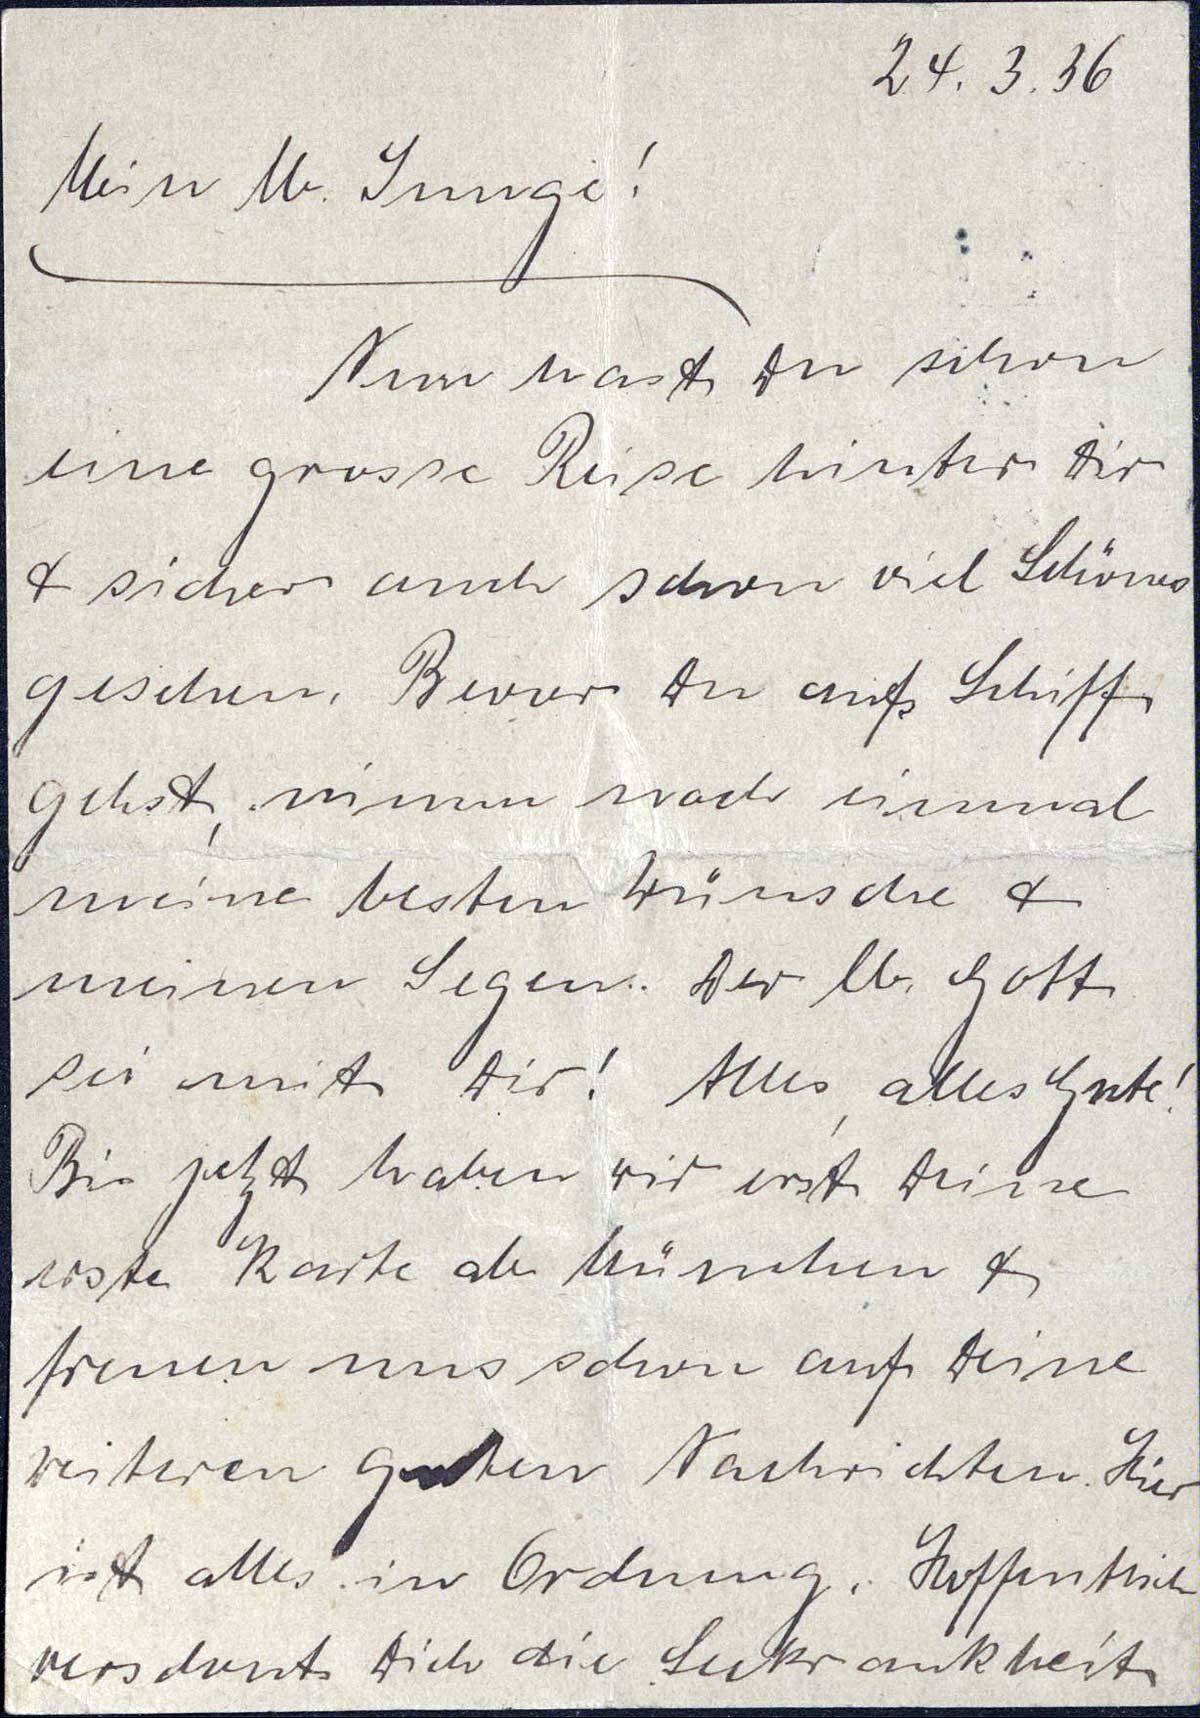 24. 3. 36
Mein lb. Junge!
Nun hast Du schon
eine grosse Reise hinter Dir
& sicher auch schon viel Schönes
gesehen. Bevor Du aufs Schiff
gehst, nimm noch einmal
meine besten Wünsche &
meinen Segen. Der lb. Gott
sei mit Dir! Alles, alles Gute!
Bis jetzt haben wir erst Deine
erste Karte ab München &
freuen uns schon auf Deine
weiteren guten Nachrichten. Hier
ist alles in Ordnung. Hoffentlich
verschont Dich die Seekrankheit